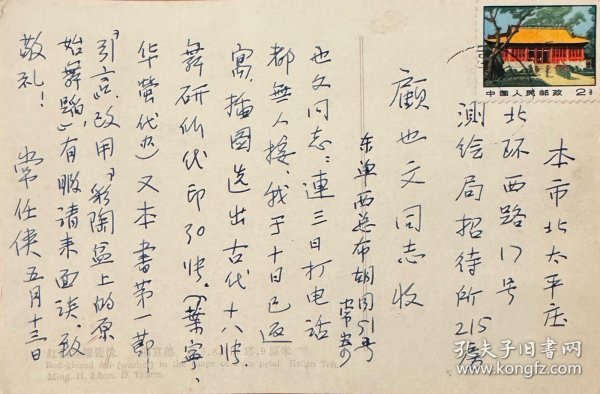 中国人民邮政
本市北太平庄
北环西路17号
測绘局招待所215房
顧也文同志收
东单西总布胡同51号
常寄
也文同志：連三日打电话
都無人接，我于十日已返
寓，插图选出古代十八帧，
舞研所代印30帧。（葉寧、
华莹代办）又本書第一節
“引言”改用“彩陶盆上的原
始舞蹈”有暇请来面谈。致
敬礼！
常任侠五月十三日
15.9厘米
Red-glazed
Ming. H. 3.8cm. D.
孔夫子旧书网
www.kongfz.com